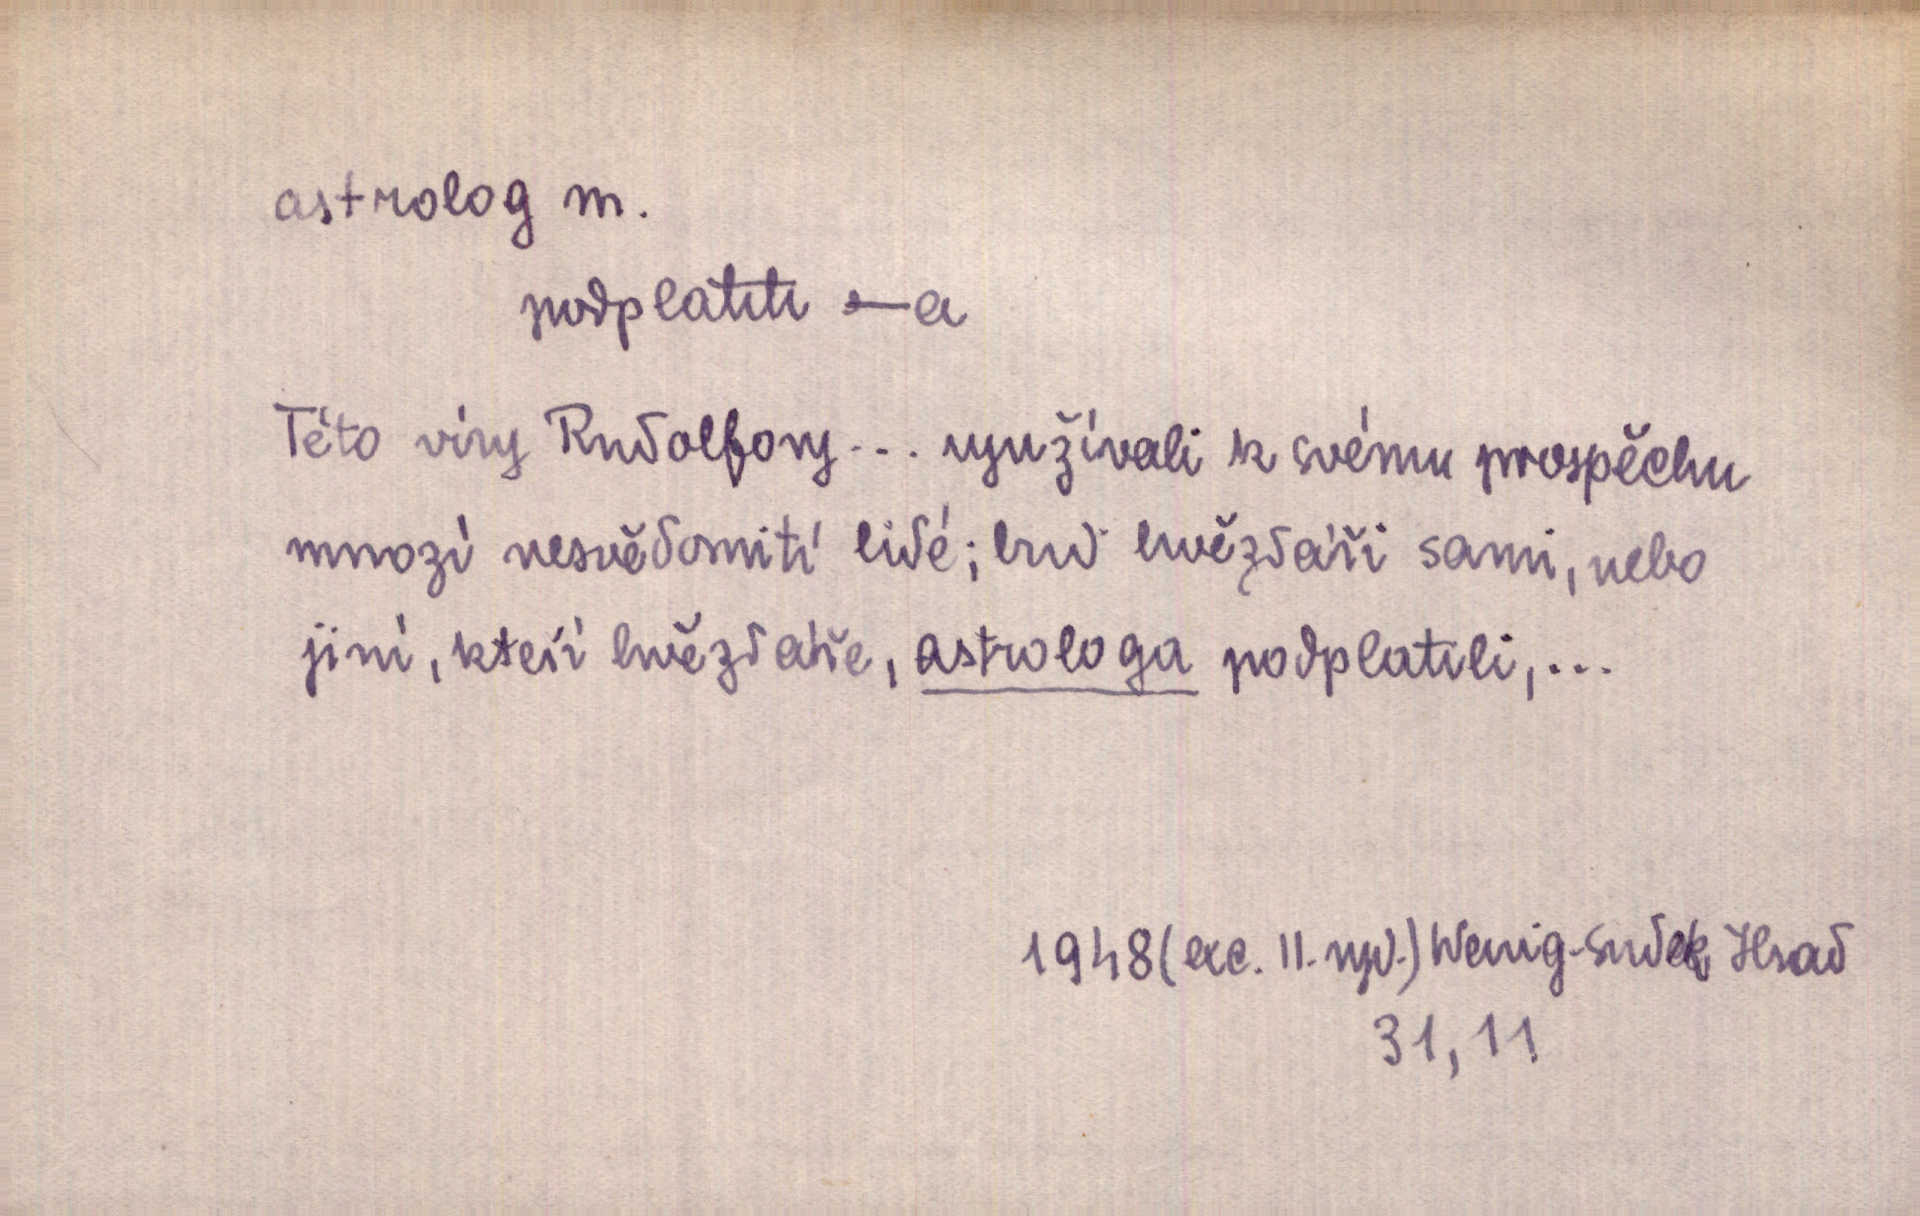 astrolog m.
podplatiti —a
Této víry Rudolfovy... využívali k svému prospěchu
mnozí nesvědomití lidé; buď hvězdáři sami, nebo
jiní, kteří hvězdáře, astrologa podplatili,...
1948 (exc. II. vyd.) Wenig-Sudek Hrad
31, 11